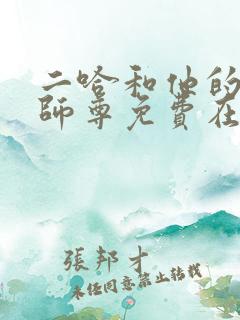 二哈和他的
師尊免費在
張邦才
未经同意禁止转载